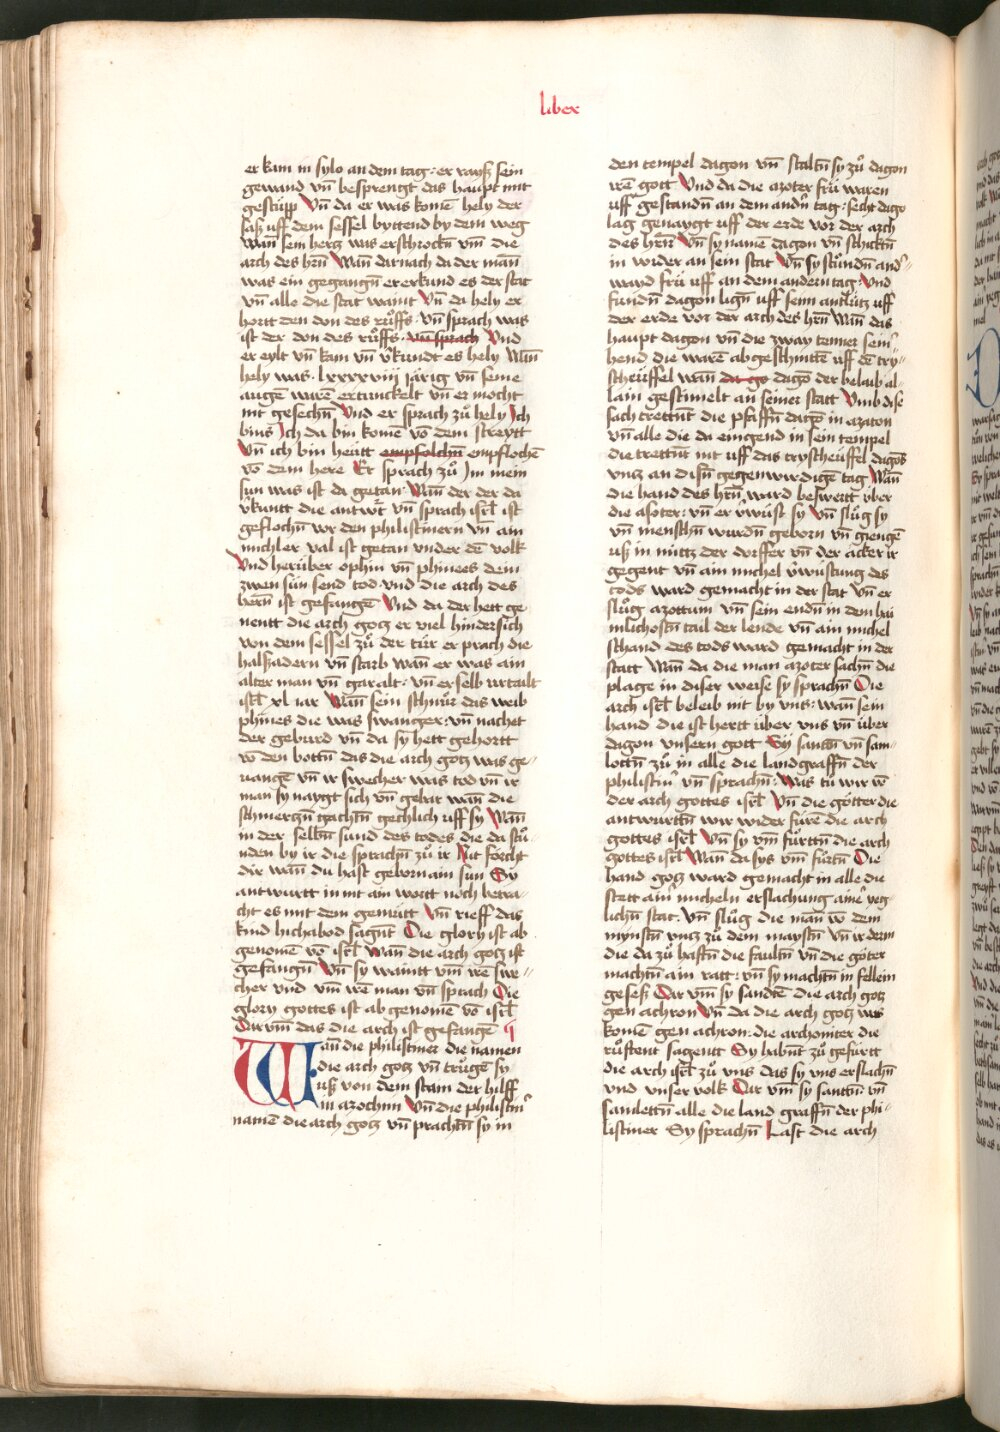 liber
er kam in sylo an dem tag · er rayß sein
gewand vn̄ besprengt das haupt mit
gestüpp Vn̄ da er was komē hely der
saß uff dem sessel byttend by dem weg
Wan̄ sein hercz was erschrockn̄ vm̄ die
arch des hrn̄ Wan̄ darnach da der man̄
was ein gegangn̄ er erkund es der stat
vn̄ alle die stat waint Vn̄ da hely er
hortt den don des růffs · vn̄ sprach was
ist der don des růffs · vn̄ sprach Vnd
er eylt vn̄ kam vn̄ v̓kundt es hely Wan̄
hely was · lxxxxviij järig vn̄ seine
augē warē ertunckelt vn̄ er mocht
nit gesechn̄ Vnd er sprach zů hely Ich
bins Ich da bin komē vō dem streytt
Vn̄ ich bin heutt empfolchn̄ empflochē
vō dem here Er sprach zů Im mein
sun was ist da getan · Wan̄ der der da
v̓kuntt die antwirt vn̄ sprach isrl̄ ist
geflochn̄ vor den philistinern vn̄ ain
michler val ist getan vnder dē volk
Vnd herüber ophin vn̄ phinees dein
zwen sün send tod · vnd die arch des
hern̄ ist gefangē Vnd da der hett ge
nentt die arch gotz er viel hindersich
von dem sessel zů der tür er prach die
halßadern vn̄ starb wan̄ er was ain
alter man vn̄ gar alt · vn̄ er selb vrtailt
isrl̄ xl iar Wan̄ sein schnůr das weib
phines die was swanger · vn̄ nachet
der geburd vn̄ da sy hett gehortt
vō den bottn̄ das die arch gotz was ge⸗
uangē vn̄ ir swecher was tod vn̄ ir
man sy naygt sich vn̄ gebar wan̄ die
schmerczn̄ gachtn̄ gechlich uff sy Wan̄
in der selbn̄ stund des todes die da stů⸗
nden by ir die sprachn̄ zů ir Nit förcht
dir wan̄ du hast geborn ain sun Sy
antwurtt in nit ain wortt noch betra⸗
cht es mit dem gemütt Vn̄ rieff das
kind hichabod sagnt Die glory ist ab
genomē vō isrl̄ Wan̄ die arch gotz ist
gefangn̄ Vn̄ sy waintt vm̄ irē swe⸗
cher vnd vm̄ irē man vn̄ sprach Die
glory gottes ist ab genomē vō isrl̄
Darvm̄ das die arch ist gefangē
Wan̄ die philistiner die namen
die arch gotz vn̄ trůgē sy
uß von dem stain der hilff
in azochum Vn̄ die philistin̄
namē die arch gotz vn̄ prachtn̄ sy in
den tempel dagon vn̄ staltn̄ sy zů dagon
irē gott Vnd da die azoter frü waren
uff gestandn̄ an dem andn̄ tag · secht dago
lag genaygt uff der erde vor der arch
des hrn̄ Vn̄ sy namē dagon vn̄ schicktn̄
in wider an sein stat Vn̄ sy stůndn̄ and⸗
wayd frü uff an dem andern tag Vnd
fundn̄ dagon lign̄ uff seim antlütz uff
der erde vor der arch des hrn̄ Wan̄ das
haupt dagon vn̄ die zway tenner sein̄
hend die warē abgeschnittē uff dē try⸗
scheuffel wan̄ da go dagō der belaib al⸗
lain gestimelt an seiner statt Vmb dise
sach trettnt die pfaffn̄ dagō in azaton
vn̄ alle die da eingend in sein tempel
die trettnt nit uff das tryscheüffel dagōs
vntz an disn̄ gegenwirdigē tag Wan̄
die hand des hrn̄ ward beswertt über
die asoter · vn̄ er v̓wüst sy Vn̄ slůg sy
vn̄ menschn̄ wurdn̄ geborn vn̄ giengē
uß in mittz der dorffer vn̄ der äcker ir
gegent vn̄ ain michel v̓wüstung des
tods ward gemacht in der stat Vn̄ er
slůg azottum vn̄ sein endn̄ in dem hai
mlichostn̄ tail der lende vn̄ ain michel
schand des tods ward gemacht in der
statt Wan̄ da die man azoter sachn̄ die
plage in diser weise sy sprachn̄ Die
arch isrl̄ beleib nit by vns · wan̄ sein
hand die ist hertt über vns vn̄ über
dagon vnsern gott Sy santn̄ vn̄ sam⸗
lottn̄ zů in alle die landgraffn̄ der
philistin̄ vn̄ sprachn̄ · Was tů wir vō
der arch gottes isrl̄ Vn̄ die götter die
antwurttn̄ wir wider fürē die arch
gottes isrl̄ Vn̄ sy vm̄ fürttn̄ die arch
gottes isrl̄ Wan̄ da sys vm̄ fürtn̄ Die
hand gotz ward gemacht in alle die
stett ain̄ micheln erslachung ainē yeg
lichn̄ stat · Vn̄ slůg die man̄ vō dem
mynstn̄ vntz zů dem maystn̄ Vn̄ ir derm
die da zů hastn̄ die faultn̄ vn̄ die göter
machtn̄ ain ratt · vn̄ sy machtn̄ in fellein
geseß Dar vm̄ sy sandtē die arch gotz
gen achron Vn̄ da die arch gotz was
komē gen achron · die archoniter die
růftent sagentt Sy habn̄t zů gefürtt
die arch isrl̄ zů vns das sy vns erslachn̄
vnd vnser volk Dar vm̄ sy santtn̄ vn̄
samlettn̄ alle die land graffn̄ der phi⸗
listiner Sy sprachn̄ Last die arch